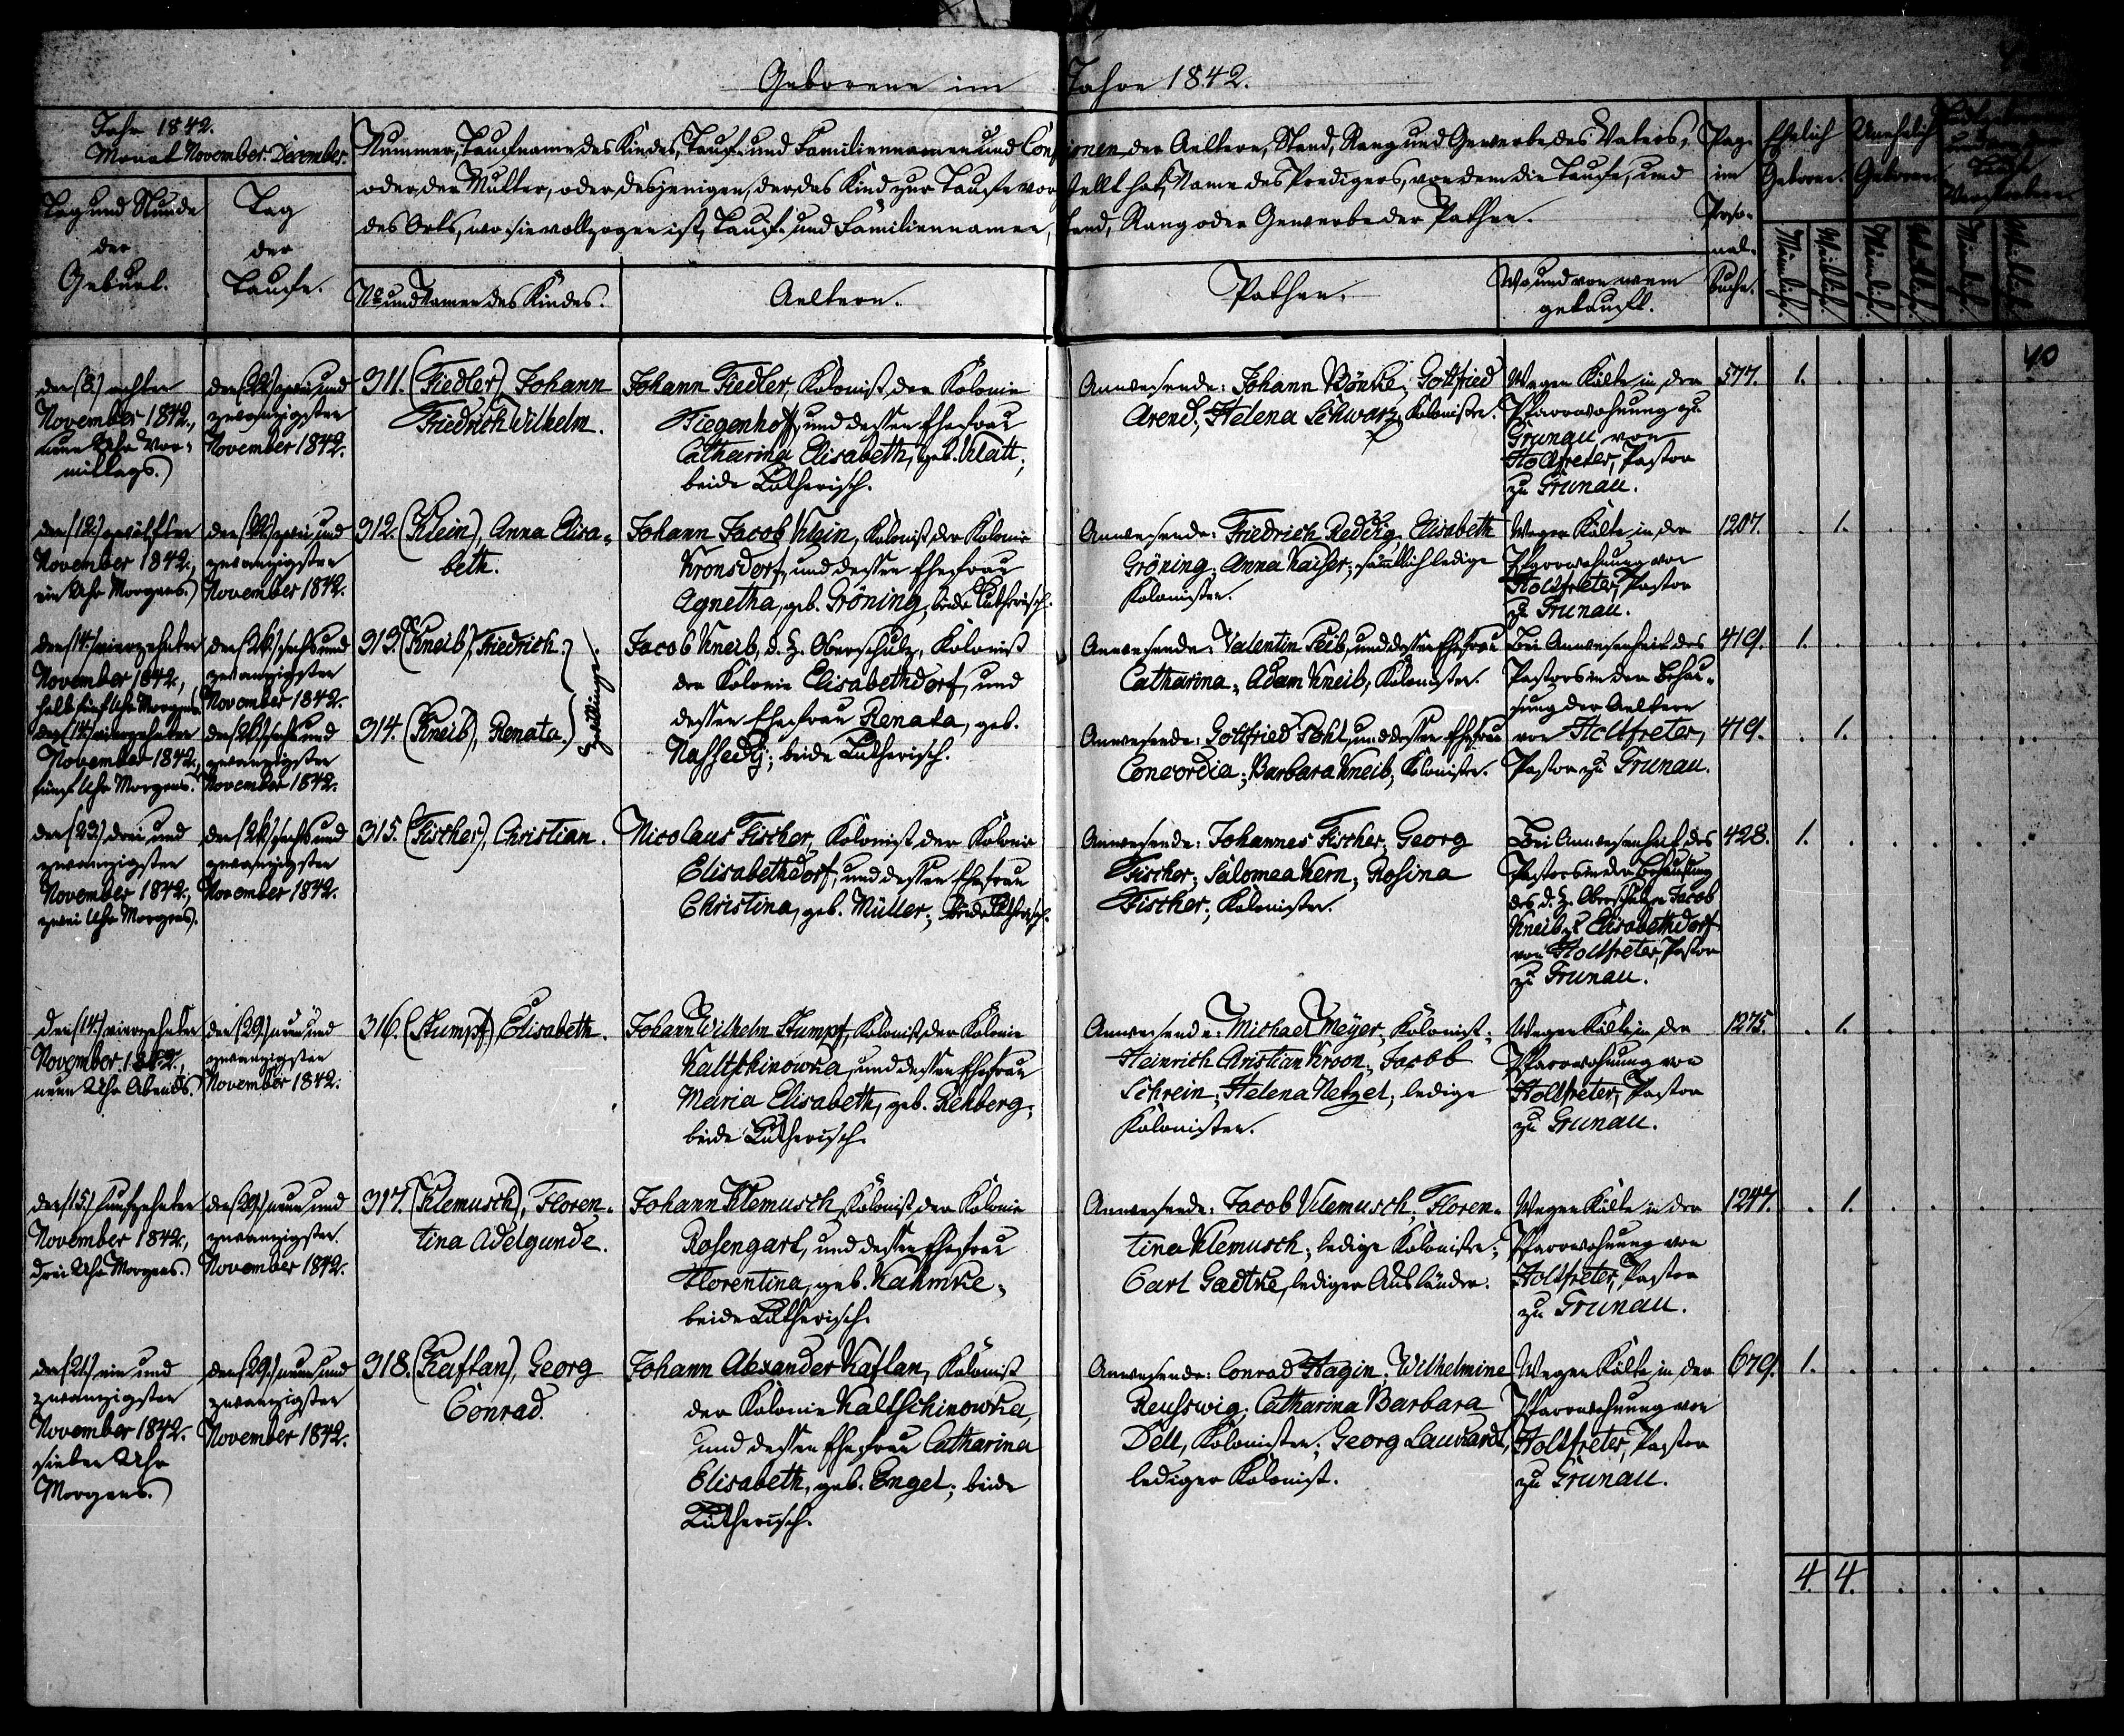 Geborene im Jahre 1842.
Jahr 1842.
Monat November. December.
Tag und Stunde
der
Geburt.
Tag
der
Taufe.
Nummer, Taufname des Kindes, Tauf- und Familiennamen und Confessionen der Aeltern, Stand, Rang und Gewerbe des Vaters,
oder der Mutter, oder desjenigen, der das Kind zur Taufe vorstellt hat, Name des Predigers, von dem die Taufe, und
des Orts, wo sie vollzogen ist, Tauf- und Familiennamen, Stand, Rang oder Gewerbe der Pathen.
No und Namen des Kindes.
Aeltern.
Pathen.
Wo und von wem
getauft.
Pag.
im
Perso-
nal-
Buche.
Ehelich
Geboren.
Unehelich
Geboren
Männlich.
Weiblich.
Männlich.
Weiblich.
Männlich.
Weiblich.
40
den (8.) achten
November 1842.,
neun Uhr Vor-
mittags.)
den (22.) zwei und
zwanzigsten
November 1842.
311. (Fiedler), Johann
Friedrich Wilhelm.
Johann Fiedler, Kolonist der Kolonie
Tiegenhoff, und dessen Ehefrau
Catharina Elisabeth, geb. Klatt;
beide Lutherisch.
Anwesende: Johann Bönke; Gottfried
Arend; Helena Schwarz, Kolonisten.
Wegen Kälte in der
Pfarrwohnung zu
Grunau von
Holtfreter, Pastor
zu Grunau.
577. 1. . . . . .
den (12.) zwölften
November 1842.,
ein Uhr Morgens.)
den (22.) zwei und
zwanzigsten
November 1842.
312. (Klein), Anna Elisa-
beth.
Johann Jacob Klein, Kolonist der Kolonie
Kronsdorf, und dessen Ehefrau
Agnetha, geb. Gröning; beide Lutherisch.
Anwesende: Friedrich Reddig; Elisabeth
Gröning; Anna Kaiser; sämtlich ledige
Kolonisten.
Wegen Kälte in der
Pfarrwohnung von
Holtfreter, Pastor
zu Grunau.
1207. . 1. . . . .
den (14.) vierzehnten
November 1842.,
halb fünf Uhr Morgens.
den (26.) sechs und
zwanzigsten
November 1842.
313. (Kneib), Friedrich.
Zwillinge.
Jacob Kneib, d. Z. Oberschulz, Kolonist
der Kolonie Elisabethdorf, und
dessen Ehefrau Renata, geb.
Nassedy; beide Lutherisch.
Anwesende: Valentin Seib, und dessen Ehefrau
Catharina; Adam Kneib, Kolonisten.
Bei Anwesenheit des
Pastors in der Behau-
sung der Aeltern
von Holtfreter,
Pastor zu Grunau.
419. 1. . . . . .
den (14.) vierzehnten
November 1842.,
fünf Uhr Morgens.
den (26.) sechs und
zwanzigsten
November 1842.
314. (Kneib), Renata.
Anwesende: Gottfried Pohl, und dessen Ehefrau
Concordia; Barbara Kneib, Kolonisten.
419. . 1. . . . .
den (23.) drei und
zwanzigsten
November 1842.,
zwei Uhr Morgens.
den (26.) sechs und
zwanzigsten
November 1842.
315. (Fischer), Christian.
Nicolaus Fischer, Kolonist der Kolonie
Elisabethdorf, und dessen Ehefrau
Christina, geb. Müller; beide Lutherisch.
Anwesende: Johannes Fischer, Georg
Fischer; Salomea Kern; Rosina
Fischer; Kolonisten.
Bei Anwesenheit des
Pastors in der Behausung
des d. Z. Oberschulzen Jacob
Kneib zu Elisabethdorf
von Holtfreter, Pastor
zu Grunau.
428. 1. . . . . .
den (14.) vierzehnten
November 1842.,
neun Uhr Abends.
den (29.) neun und
zwanzigsten
November 1842.
316. (Stumpf), Elisabeth.
Johann Wilhelm Stumpf, Kolonist der Kolonie
Kaltschinowka, und dessen Ehefrau
Maria Elisabeth, geb. Rehberg;
beide Lutherisch.
Anwesende: Michael Meyer, Kolonist;
Heinrich Christian Kroon; Jacob
Schrein; Helena Netzel; ledige
Kolonisten.
Wegen Kälte in der
Pfarrwohnung von
Holtfreter, Pastor
zu Grunau.
1275. . 1. . . . .
den (15.) funfzehnten
November 1842.,
drei Uhr Morgens.
den (29.) neun und
zwanzigsten
November 1842.
317. (Klemusch), Floren-
tina Adelgunde.
Johann Klemusch, Kolonist der Kolonie
Rosengart, und dessen Ehefrau
Florentina, geb. Kahmke;
beide Lutherisch.
Anwesende: Jacob Klemusch; Floren-
tina Klemusch; ledige Kolonisten;
Carl Gaedtke, lediger Ausländer.
Wegen Kälte in der
Pfarrwohnung von
Holtfreter, Pastor
zu Grunau.
1247. . 1. . . . .
den (21.) ein und
zwanzigsten
November 1842.
sieben Uhr
Morgens.)
den (29.) neun und
zwanzigsten
November 1842.
318. (Kaflan), Georg
Conrad.
Johann Alexander Kaflan, Kolonist
der Kolonie Kaltschinowka,
und dessen Ehefrau Catharina
Elisabeth, geb. Engel; beide
Lutherisch.
Anwesende: Conrad Hagin; Wilhelmine
Reuswig; Catharina Barbara
Dell, Kolonisten; Georg Laukardt,
lediger Kolonist.
Wegen Kälte in der
Pfarrwohnung von
Holtfreter, Pastor
zu Grunau.
679. 1. . . . . .
4. 4. . . . .